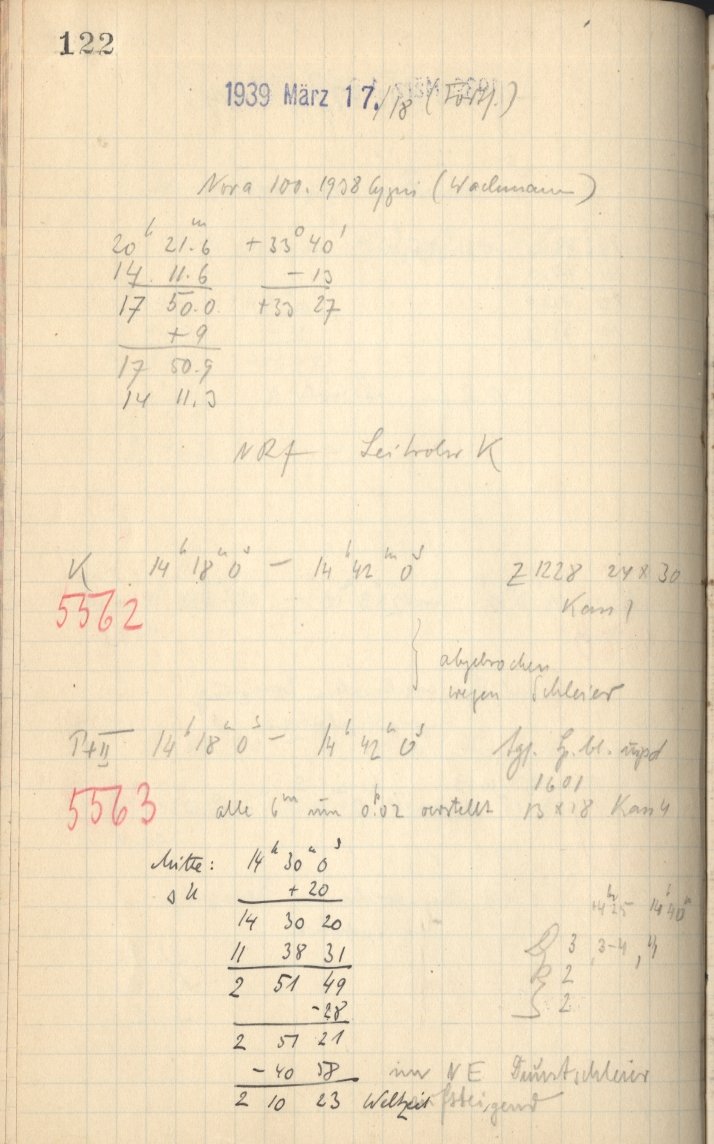 122
1939 März 17./18 (Forts.)
Nova 100.1938 Cygni (Wachmann)
20 h 21.6 m +33° 40'
14 11.6 - 13
17 50.0 +33 27
+ 9
17 50.9
14 11.3
NRf Leitrohr K
K 14 h 18 m 0 s — 14 h 42 m 0 s Z 1228 24 x 30
5562 Kass 1
} abgebrochen
wegen Schleier
14 h 18 m 0 s — 14 h 42 m 0 s
1601
5563 alle 6 m um 0.02 verstellt 13 x 18 Kass 4
Mitte: 14 h 30 m 0 s
+ 20
14 30 20
11 38 31
2 51 49
-28
2 51 21
- 40 58
2 10 23 Weltzeit
14 h 25 14 h 40 m
3 3-4, 4
R 2
S 2
im NE Dunstschleier
aufsteigend